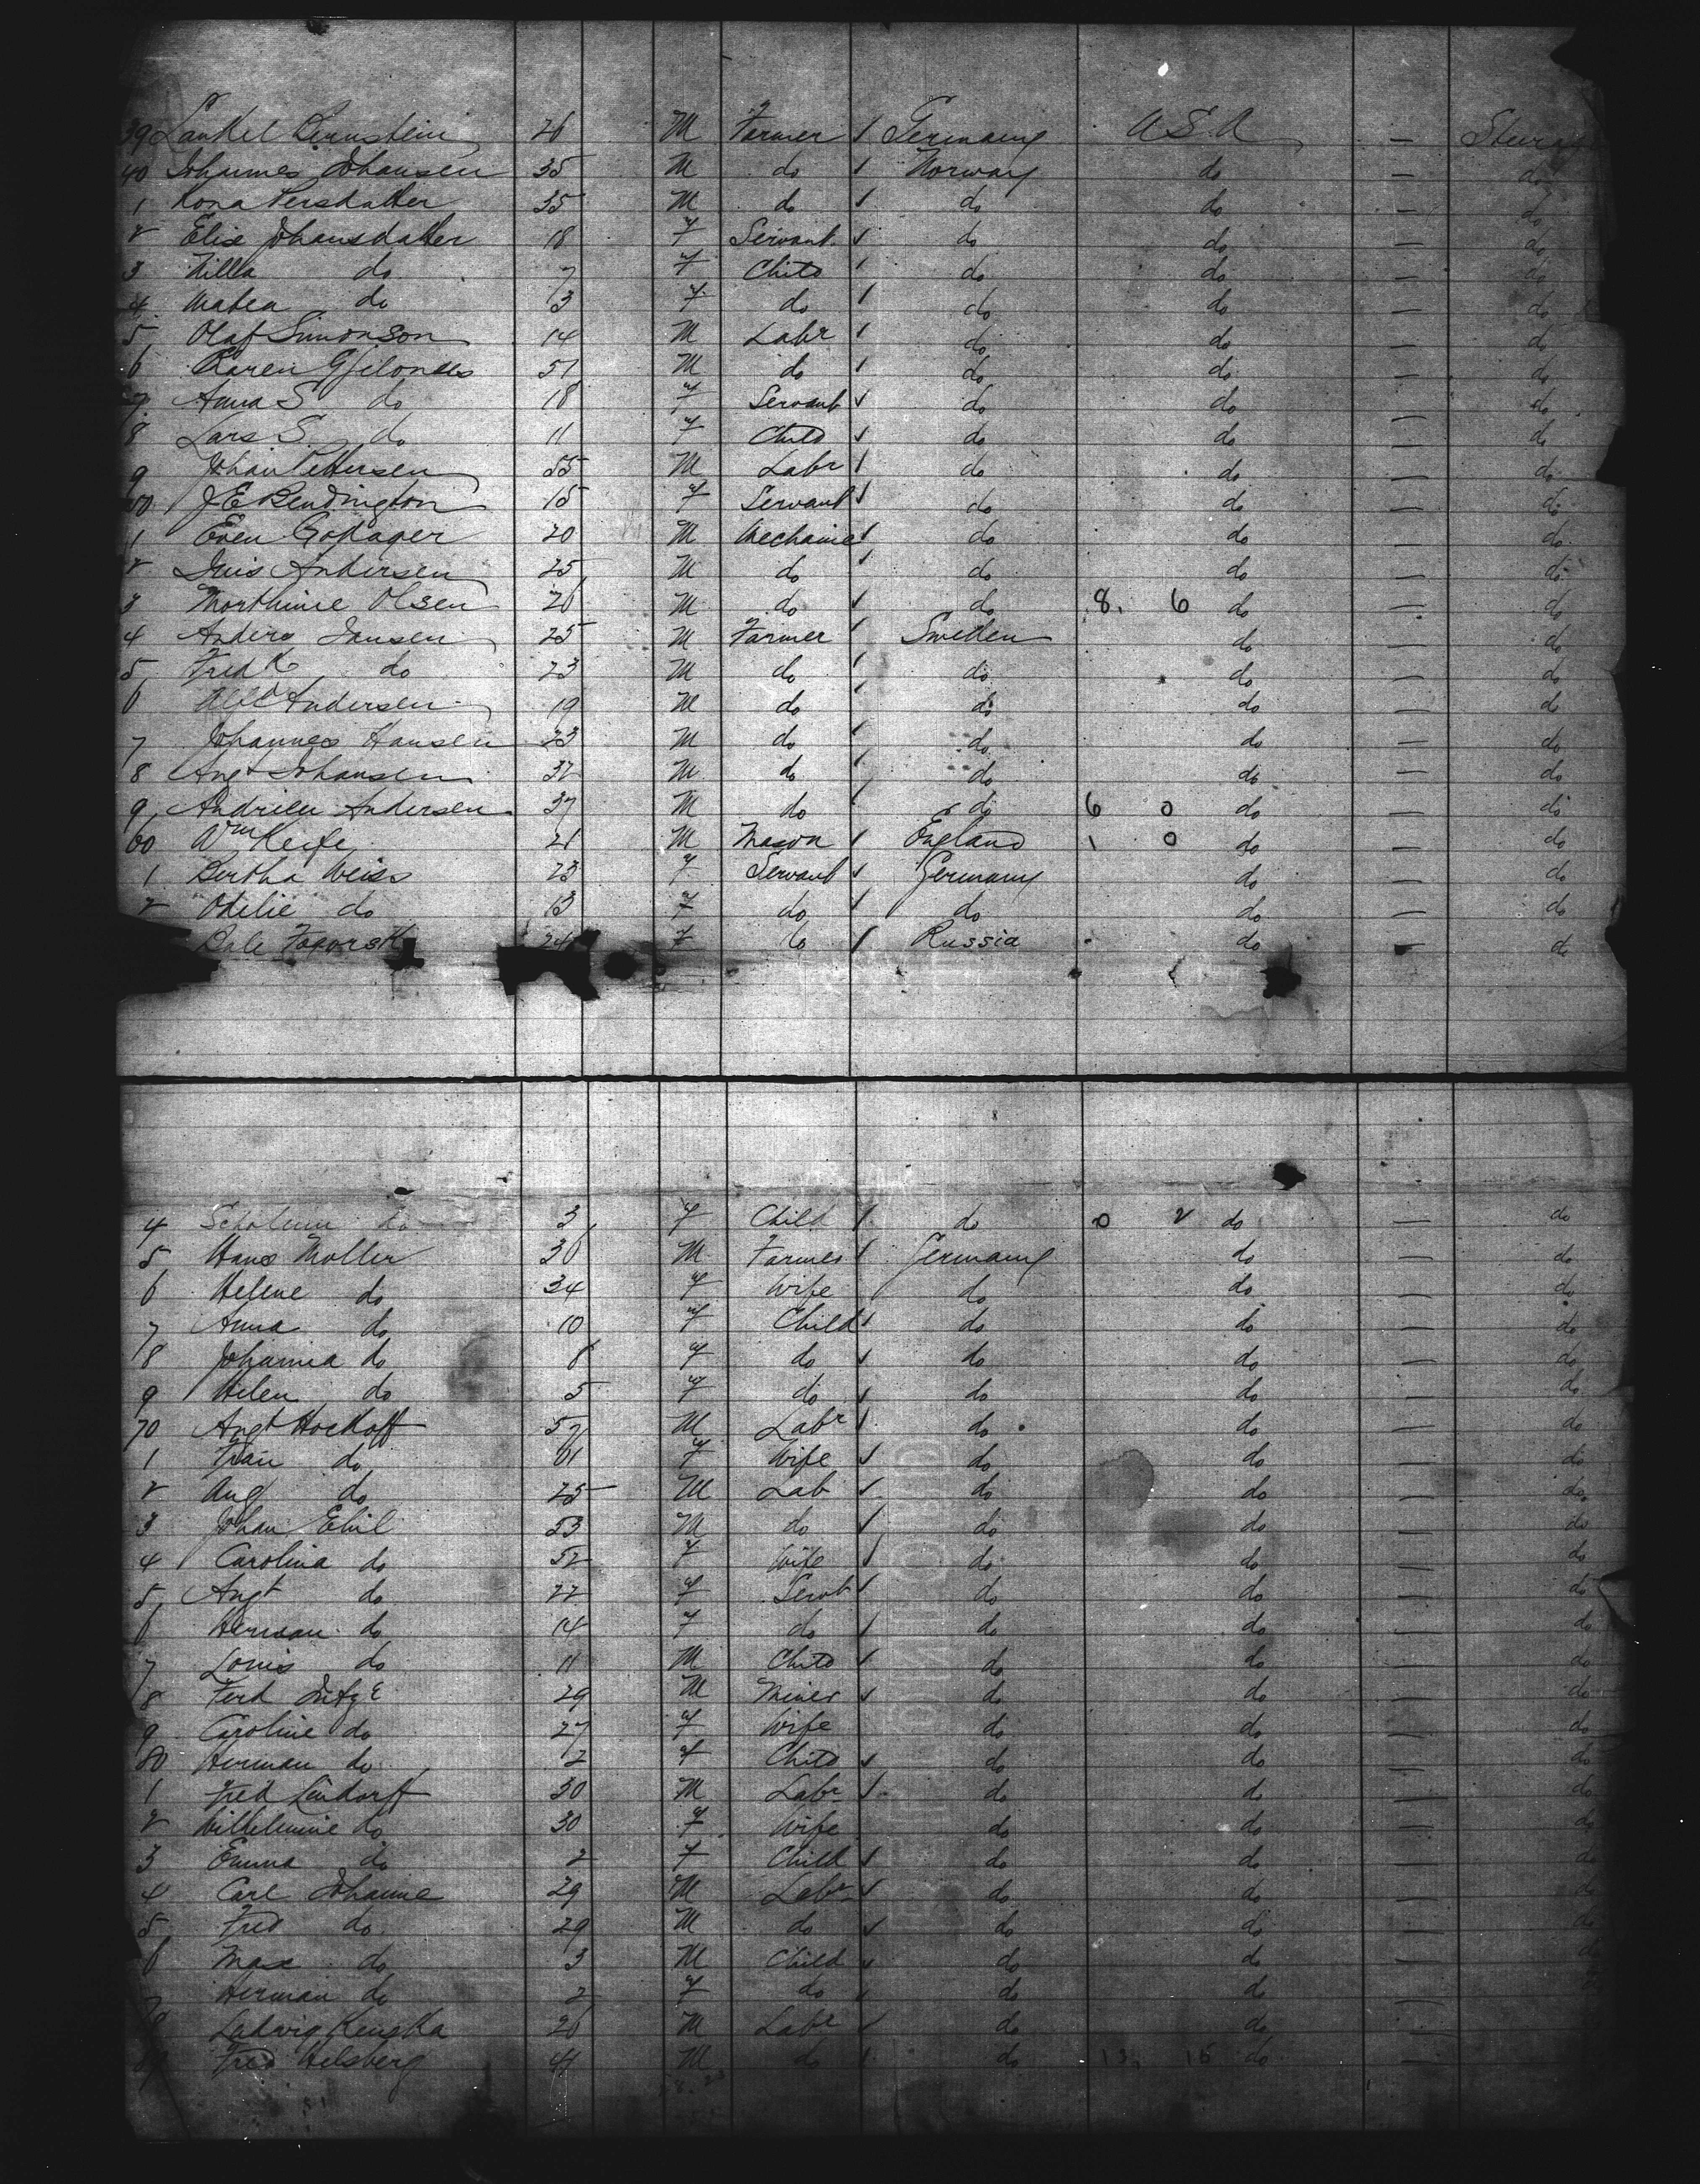 39 Bernstein 26 M Farmer Germany U.S.A — Steerage
40 Johannes Johansen 35 M do Norway do — do
1 Kona Persdatter 35 M do do do — do
2 Elise Johansdatter 18 F Servant do do — do
3 Nilla do 7 F Child do do — do
4 Matea do 3 F do do do — do
5 Olaf Simonson 14 M Labr do do — do
6 Karen 51 M do do do — do
7 Anna S do 18 F Servant do do — do
8 Lars S. do 11 F Child do do — do
9 Johan Pettersen 55 M Labr do do — do
50 J E Bendington 15 F Servant do do — do
1 Even 20 M Mechanic do do — do
2 Andersen 25 M do do do — do
3 Olsen 26 M do do 8. 6 do — do
4 Anders Jansen 25 M Farmer Sweden do — do
5 Fredk do 23 M do do do — do
6 Andersen 19 M do do do — do
7 Johannes Hansen 23 M do do do — do
8 Augt Johansen 32 M do do do — do
9 Andersen 37 M do do 6 0 do — do
60 Wm Keife 21 M Mason England 1 0 do — do
1 Bertha Weiss 23 F Servant Germany do — do
2 Otilie do 13 F do do do — do
24 F do Russia do — do
4 do 3 F Child do 0 2 do — do
5 Hans Moller 36 M Farmer Germany do — do
6 Helene do 34 F Wife do do — do
7 Anna do 10 F Child do do — do
8 Johanna do 8 F do do do — do
9 Helen do 5 F do do do — do
70 Augt Hockoff 57 M Labr do do — do
1 do 61 F Wife do do — do
2 Aug do 25 M Lab do do — do
3 Johan Ehil 53 M do do do — do
4 Carolina do 52 F Wife do do — do
5 Augt do 22 F Servt do do — do
6 Herman do 14 F do do do — do
7 Louis do 11 M Child do do — do
8 Ferd 29 M Miner do do — do
9 Caroline do 27 F Wife do do — do
80 Herman do 2 F Child do do — do
1 Fred Lindorff 30 M Labr do do — do
2 Wilhelmine do 30 F Wife do do — do
3 Emma do 2 F Child do do — do
4 Carl Johanne 29 M Labr do do — do
5 Fred do 29 M do do do — do
6 Max do 3 M Child do do — do
7 Herman do 2 F do do do —
Ludwig Kenska 26 M Labr do do —
Fred Hilsberg 41 M do do 13. 15 do —